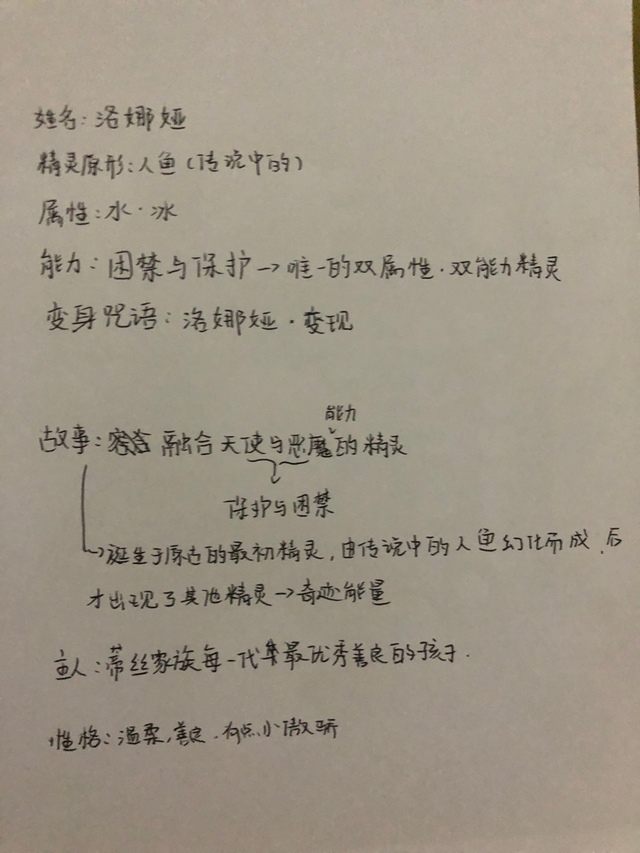 姓名：洛娜娅
精灵原形：人鱼（传说中的）
属性：水·冰
能力：困禁与保护→唯一的双属性·双能力精灵
变身咒语：洛娜娅·变现
能力
故事：融合天使与恶魔的精灵
保护与困禁
→诞生于原古的最初精灵，由传说中的人鱼幻化而成，后
才出现了其他精灵→奇迹能量
主人：蒂丝家族每一代集最优秀善良的孩子.
性格：温柔，善良．有点小傲骄